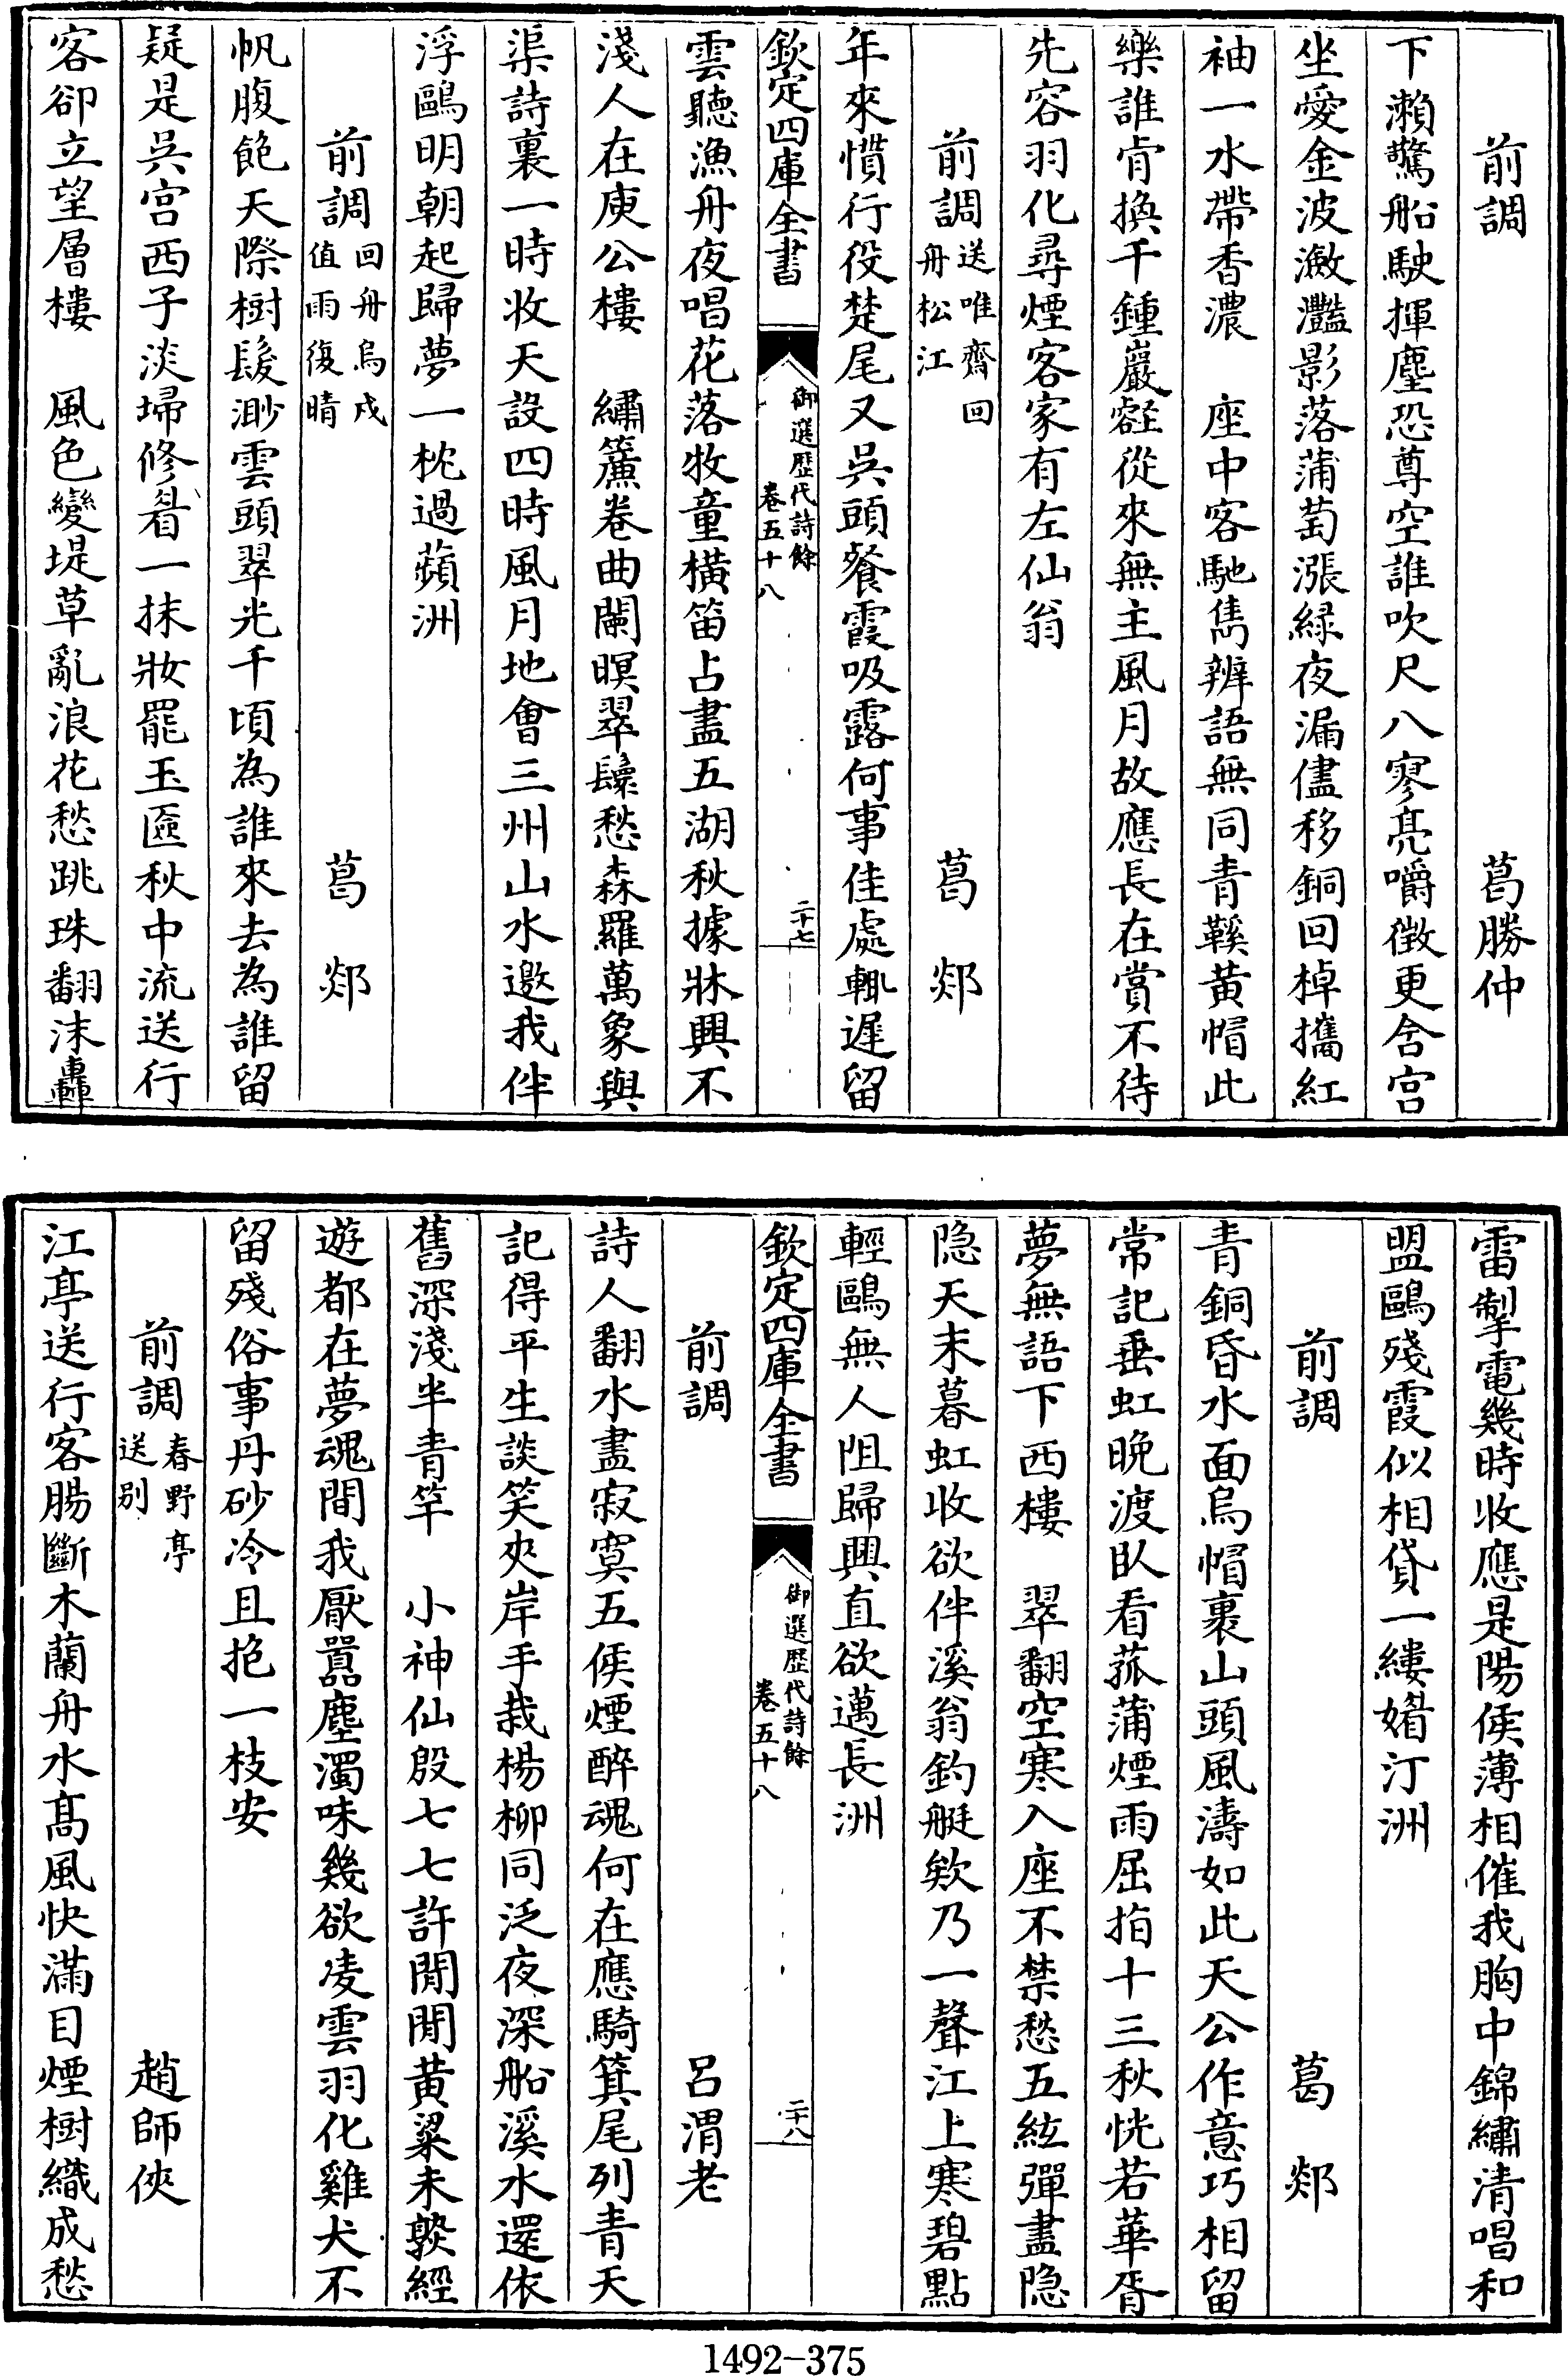 前調　葛勝仲
下瀨驚船駛揮塵恐尊空誰吹尺八寥亮嚼徵更含宫
坐愛金波瀲灩影落蒲萄漲緑夜漏儘移銅回棹攜紅
袖一水帶香濃　座中客馳雋辨語無同青鞵黄帽此
樂誰肯換千鍾巖壑從來無主風月故應長在賞不待
先容羽化尋煙客家有左仙翁
前調送唯齋回舟松江　葛郯
年來慣行役楚尾又吳頭餐霞吸露何事佳處輒遲留
欽定四庫全書　御選歴代詩餘卷五十八　二十七
雲聽漁舟夜唱花落牧童横笛占盡五湖秋據牀興不
淺人在庾公樓　繡簾卷曲闌暝翠鬟愁森羅萬象與
渠詩裏一時收天設四時風月地會三州山水邀我伴
浮鷗明朝起歸夢一枕過蘋洲
前調回舟烏戍值雨復晴　葛郯
帆腹飽天際樹髮渺雲頭翠光千頃為誰來去為誰留
疑是吳宫西子淡埽修眉一抹妝罷玉匳秋中流送行
客卻立望層樓　風色變堤草亂浪花愁跳珠翻沫轟
雷掣電幾時收應是陽侯薄相催我胸中錦繡清唱和
盟鷗殘霞似相貸一縷媚汀洲
前調　葛郯
青銅昏水面烏帽裹山頭風濤如此天公作意巧相留
常記垂虹晚渡臥看菰蒲煙雨屈指十三秋恍若華胥
夢無語下西樓　翠翻空寒入座不禁愁五絃彈盡隐
隐天末暮虹收欲伴溪翁釣艇欸乃一聲江上寒碧點
輕鷗無人阻歸興直欲邁長洲
欽定四庫全書　御選歴代詩餘卷五十八　二十八
前調　呂渭老
詩人翻水盡寂寞五侯煙醉魂何在應騎箕尾列青天
記得平生談笑夾岸手栽楊柳同泛夜深船溪水還依
舊深淺半青竿　小神仙殷七七許閒閒黄粱未熟經
遊都在夢魂間我厭囂塵濁味幾欲凌雲羽化雞犬不
留殘俗事丹砂冷且抱一枝安
前調春野亭送别　趙師俠
江亭送行客腸斷木蘭舟水髙風快滿目煙樹織成愁
1492-375